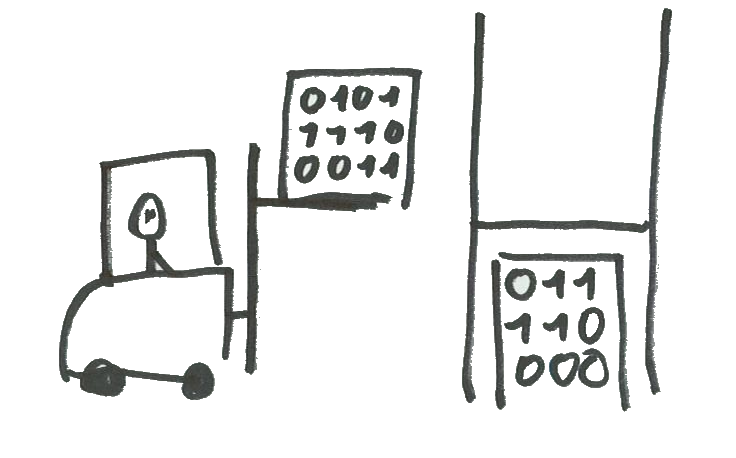 0101
1110
0011
011
110
000